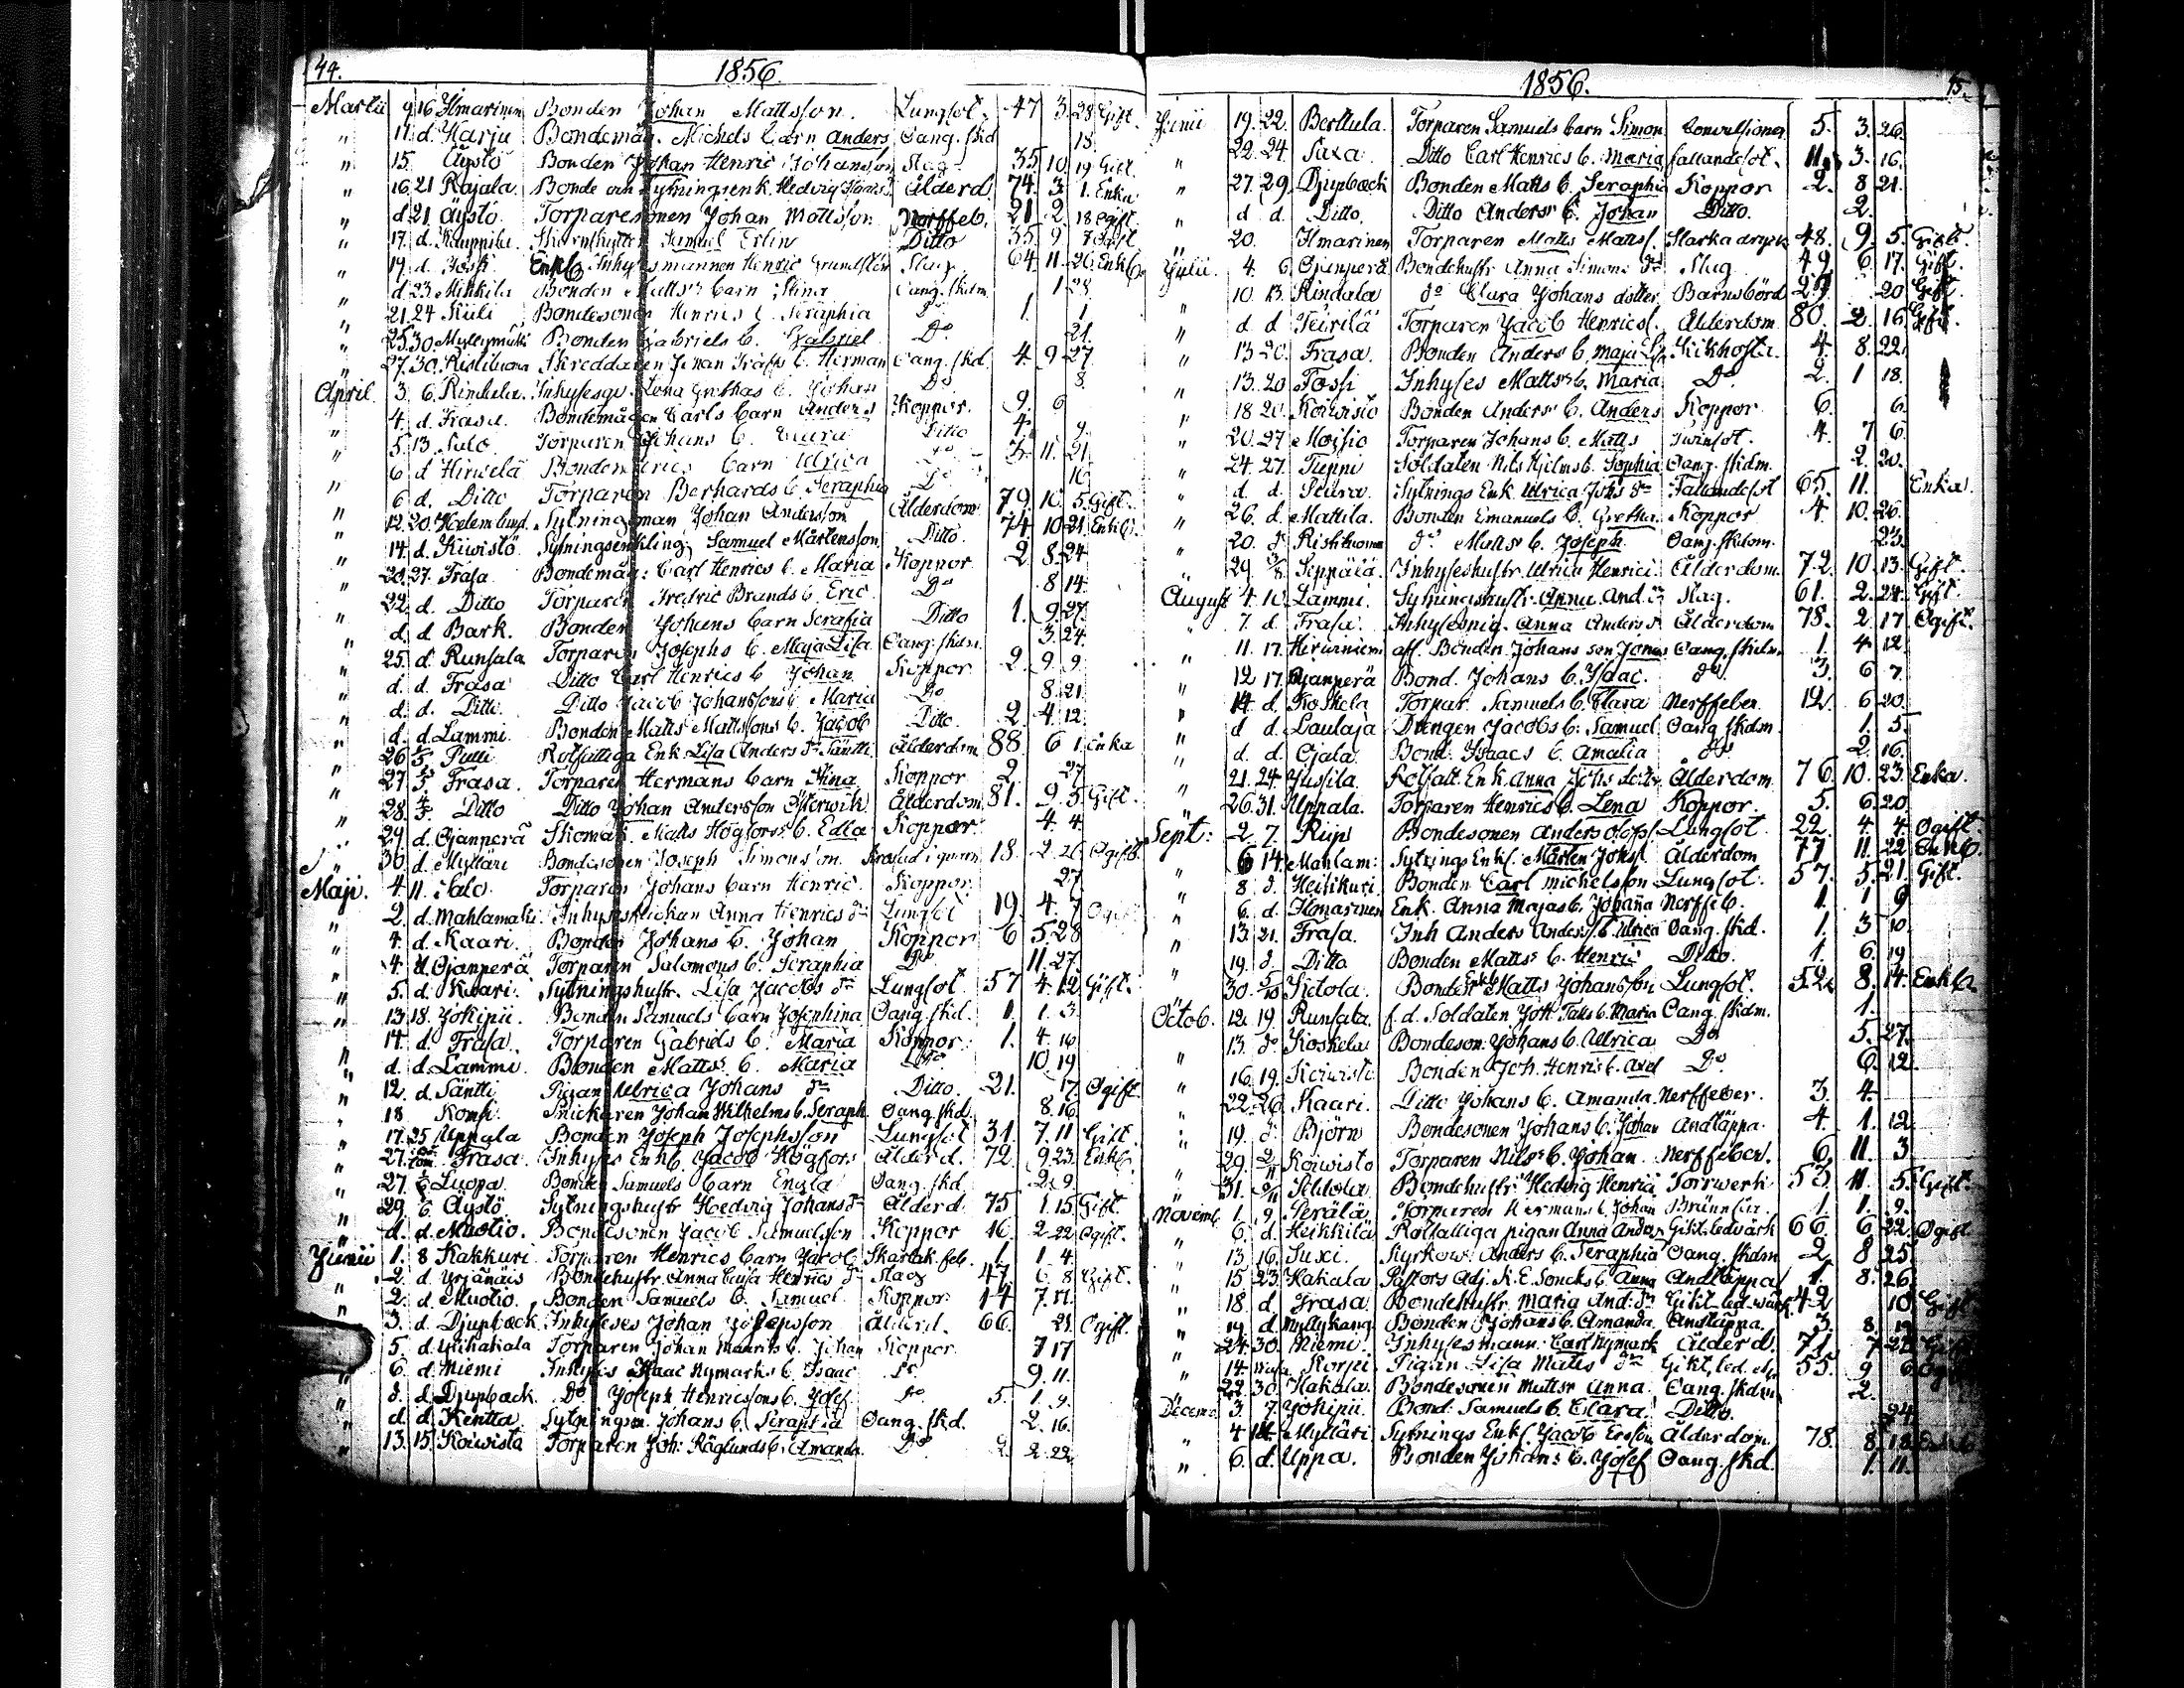 44. 1856.
Martii 9 16 Ilmarinen Bonden Johan Mattsson. Lungsot. 47 3. 28 Gift.
" 11. d. Harju Bondemåg. Michels barn Anders Oang. skd 18.
" 15. Äystö Bonden Johan Henric Johansson Slag. 35 10. 19 Gift.
" 16. 21 Rajala. Bonde Sytningsenk. Hedvig Ålderd. 74. 3. 1. Enka
" d. 21. Äystö. Torparesonen Johan Mattsson Nerffeb. 21 2. 18 Ogift.
" 17. d. Kauppila Samuel Erlin Ditto 35. 9 Ogift
" 19. d. Joski Enkl. Inhysesmannen Henric Grundström Slag 64. 11. 26. Enkl.
" d. 23. Mikkila Bonden Matts barn Stina Oang. skdm. 1 28
" 21. 24 Kuli Bondesonen Henrics b. Seraphia Do 1. 1
" 25. 30 Myllymäki Bonden Gabriels b. Gabriel Do 21.
" 27. 30. Ristiluoma Skreddaren b. Herman Oang. skd. 4. 9 27.
April. 3. 6. Rindala. Inhysesqv. Lena Grethas b. Johan Do 8.
" 4. d. Frasa. Bondemågen Carls barn Anders Koppor. 9 6
" 5. 13. Salo Torparen Johans b. Clara Ditto 4. 9.
" 6 d Hirvelä Bonden Erics barn Ulrica Do 3. 11. 21
" 6 d. Ditto Torparen Berhards b. Seraphia Do 16
" 12. 20. Holmlund. Sytningsman Johan Andersson Ålderdom 79. 10. 5. Gift.
" 14. d. Kiwistö Sytningsenkling Samuel Mårtensson. Ditto. 74 10 21. Enkl.
" 20. 27. Frasa Bondemåg: Carl Henrics b. Maria Koppor 2 8. 24
" 22. d. Ditto Torparen Fredric Brands b. Eric. Do 8 14.
" d. d Bark. Bonden Johans barn Serafia Ditto 1. 9. 27.
" 25. d. Runsala Torparen Josephs b. Maja Lisa Oang. skdm. 3. 24.
" d. d. Frasa Ditto Carl Henrics b Johan Koppor 2. 9 9
" d. d. Ditto. Ditto Jacob Johanssons b. Maria Do 8. 21
" d. d. Lammi. Bonden Matts Mattssons b. Jacob Ditto. 2. 4 12.
" 26 4/5 Pulli Rotfattiga Enk. Lisa Anders dr Säntti. Ålderdom 88. 6 1. Enka
" 27. 4/5. Frasa. Torparen Hermans barn Stina Koppor 2. 27
" 28. 4/5. Ditto Ditto Johan Andersson Österwik Ålderdom 81. 9. 5. Gift.
" 29. d. Ojanperä Skomak. Matts Högfors b. Edla Koppor. 4. 4.
" 30. d. Mylläri Bondesonen Joseph Simonsson. 18. 2. 26. Ogift.
Maji. 4. 11. Salo. Torparen Johans barn Henric. Koppor. 27
" 2. d. Mahlamäki. Inhysesflickan Anna Henrics dr Lungsot 19. 4. 7 Ogift
" 4. d. Kaari. Bonden Johans b. Johan Koppor 6 5. 28
" 4. d. Ojanperä Torparen Salomons b. Seraphia Do. 11. 27.
" 5. d. Kaari. Sytningshustr. Lisa Jacobs dr Lungsot. 57 4. 12. Gift.
" 13. 18. Jokipii. Bonden Samuels barn Josephina. Oang. skd. 1. 1. 3.
" 14. d. Frasa. Torparen Gabriels b. Maria Koppor. 1. 4. 16
" d. d. Lammi. Bonden Matts b. Maria Do 10. 19
" 12. d. Säntti Pigan Ulrica Johans dr Ditto. 21. 17. Ogift.
" 18 Komsi. Snickaren Johan Wilhelms b. Seraph. Oang. skd. 8. 16.
" 17. 25. Uppala Bonden Joseph Josephsson Lungsot 31. 7. 11 Gift.
" 27. Frasa. Inhyses Enkl. Jacob Högfors Ålderd. 72. 9. 23. Enkl.
" 27. Luopa. Bonden Samuels barn Engla Oang. skd. 2. 9
" 29. 6. Äystö. Sytningshustr Hedvig Johans dr Ålderd. 75 1. 15. Gift.
" d. d. Muotio. Bondesonen Jacob Samuelsson Koppor 16. 2. 22. Ogift.
Junii 1. 8 Kakkuri. Torparen Henrics barn Jacob Skarlak. feb. 1. 1 4.
" 2. d. Yrjänäis Bondehustr. Anna Caisa Henrics dr Slag 47 6 8 Gift.
" 2. d. Muotio. Bonden Samuels b. Samuel. Koppor 14 7. 17.
" 3. d. Djupbäck. Inhyses Johan Josepsson Ålderd. 66. 21 Ogift.
" 5. d. Ylihakala Torparen Johan Maurits b. Johan Koppor. 7 17
" 6. d. Niemi Inhyses Isaac Nymarks b. Isaac Do. 9. 11.
" d. d. Djupback. Do Joseph Henricssons b. Josef Do. 5. 1. 9.
" d. d. Kentta Sytningsm. Johans b. Seraphia Oang. skd. 2. 16.
" 13. 15. Koiwista Torparen Joh: Råglunds b: Amanda. Do. 2. 22.
1856. 45.
Junii 19. 22. Berttula. Torparen Samuels barn Simon Convulsioner 5. 3. 26.
" 22. 24. Saxa. Ditto Carl Henrics b. Maria fallandesot. 11. 3. 16.
" 27. 29. Djupback Bonden Matts b. Seraphia Koppor 2. 8 21.
" d. d. Ditto. Ditto Anders b. Johan Ditto. 2.
" 20. Ilmarinen Torparen Matts Mattss. Starka drycker 48. 9. 5. Gift.
Julii. 4. 6. Ojanperä Bondehustr Anna Simons dr Slag 49 6 17. Gift.
" 10. 13. Rindala do Clara Johans dotter Barnsbörd 29. 20 Gift.
" d. d Teirilä Torparen Jacob Henricss. Ålderdom. 80. 2. 16 Gift.
" 13 20. Frasa. Bonden Anders b. Maja Lis. Kikhosta. 4. 8. 22.
" 13. 20 Joski Inhyses Matts b. Maria Do. 2. 1 18.
" 18. 20. Koiwisto Bonden Anders b. Anders Koppor 6. 6.
" 20. 27. Moisio Torparen Johans b. Matts Twinsot. 4. 7 6.
" 24. 27. Tuppi Soldaten Nils Hjelms b. Sophia Oang. skdm. 2. 20.
" d. d. Peura. Sytnings Enk. Ulrica Johs dr Fallandesot 65. 11. Enka.
" 26. d. Mattila. Bonden Emanuels b. Gretha Koppor 4. 10. 26.
" 20. do Ristiluoma do Matts b. Joseph. Oang. skdom. 23.
" 29. 3/8 Seppälä. Inhyseshustr. Ulrica Henrici Ålderdom. 72. 10. 13. Gift.
August 4. 10. Lammi. Sytningshustr. Anna And. dr Slag. 61. 2. 24. Gift.
" 7. d. Frasa. Inhysespig. Anna Anders d. Ålderdom 78. 2. 17 Ogift.
" 11. 17. Hirviniemi aff. Bonden Johans son Jonas Oang. skdm. 1. 4 12.
" 12 17. Ojanperä Bond. Johans b. Isaac. do. 3. 6 7.
" 14. d. Koskela Torpar. Samuels b. Clara Nerffeber. 12. 6 20.
" d d. Laulaja Drengen Jacobs b. Samuel. Oang. skdm. 1. 5.
" d. d. Ojala Bond. Isaacs b. Amalia do. 2. 16.
" 21. 24. Jussila. Rotfatt. Enk. Anna Johs dotter Ålderdom. 76. 10. 23. Enka.
" 26. 31. Uppala. Torparen Henrics b. Lena Koppor. 5. 6 20
Sept: 2. 7. Riip Bondesonen Anders Olofss. Lungsot. 22. 4. 4. Ogift.
" 6 14. Mahlam: Sytnings Enkl. Mårten Johss. Ålderdom 77 11. 22 Enkl.
" 8 d. Heikkuri. Bonden Carl Michelsson Lungsot. 57. 5. 21. Gift.
" 6. d. Ilmarinen Enk. Anna Majas b. Johana Nerffeb. 1. 1 9
" 13. 21. Frasa. Inh Anders Anderss. b. Ulrica Oang. skd. 1. 3 10.
" 19. d. Ditto Bonden Matts b. Henric Ditto. 1. 6. 19
" 30. 5/10 Ketola. Bonden Enkl. Matts Johansson Lungsot. 52. 8. 14. Enkl.
Octob. 12. 19. Runsala. f.d. Soldaten b. Maria Oang. skdm. 1.
" 13. do Koskela Bondeson: Johans b. Ulrica Do 5. 27.
" 16. 19. Koiwisto Bonden Joh. Henrics b. Axel Do. 6. 12.
" 22. 26. Kaari. Ditto Johans b. Amanda. Nerffeber. 3. 4.
" 19. d. Björn Bondesonen Johans b. Johan Andtäppa. 4. 1. 12.
" 29. 2/11 Koiwisto Torparen Nils b. Johan Nerffeber. 6. 11. 3
" 31. 2/11 Bondehustr. Hedvig Henrici Torrwerk 53. 11. 5. Gift.
Novemb. 1. 9. Perälä Torparen Hermans b. Johan Brännsår. 1. 1. 9.
" 6. d. Heikkilä Rotfattiga pigan Anna Anders Gikt ledwärk 66. 6 22 Ogift
" 13. 16. Luxi. Kyrkow. Anders b. Seraphia Oang. skdm 2 8 25
" 15. 23. Hakala Pastors Adj. K. E. Soncks b. Anna Andtäppa 1. 8. 26.
" 18. d Frasa Bondehustr Maria And. dr Gikt led. wärk 42 10 Gift
" 19 d. Myllykang. Bonden Johans b. Amanda. Andtäppa. 3. 8. 19
" 24. 30. Niemi. Inhysesmann. Carl Nymark Ålderd. 71. 7 28 Gift
" 14. Wasa. Korpi. Pigan Lisa Matts dr 55. 9 6 Ogift
" 22. 30. Hakala. Bondesonen Matts Anna. Oang. skdm. 2.
Decemb. 3. 7 Jokipii Bond. Samuels b. Clara. Ditto. 24
" 4. 14. Myllari Sytnings Enkl. Jacob Ersson Ålderdom. 78. 8. 18 Enkl
" 6. d. Uppa. Bonden Johans b. Josef Oang. skd. 1. 11.